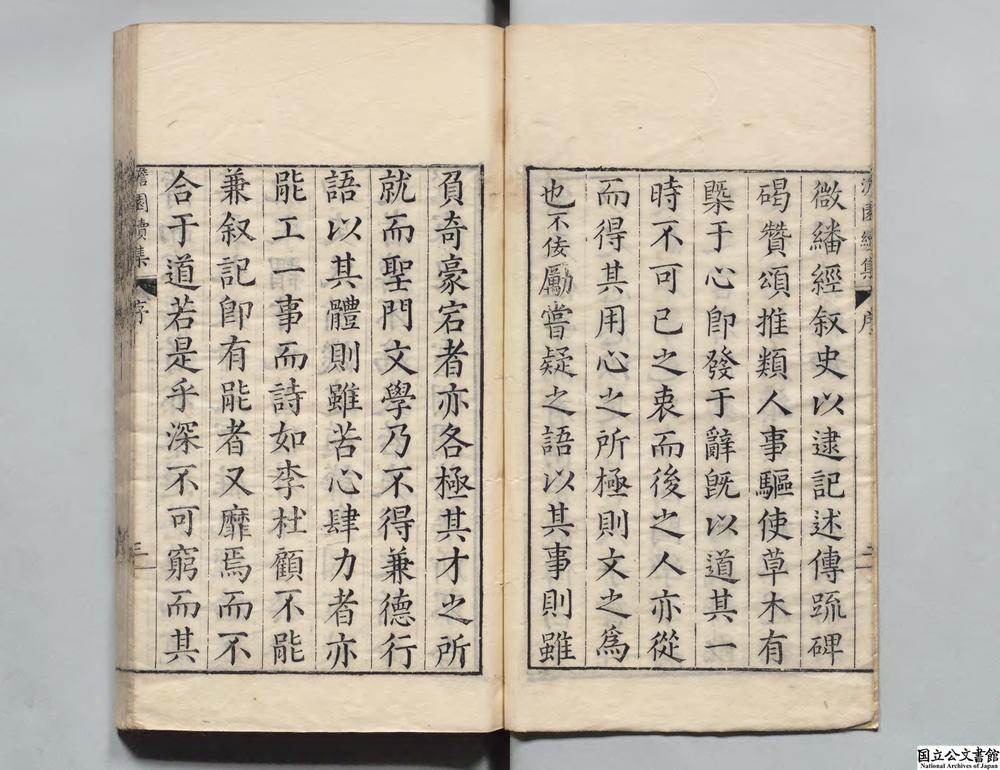 微繙經叙史以逮記述傳䟽碑
碣贊頌推類人事驅使草木有
槩于心卽發于辭旣以道其一
時不可已之衷而後之人亦從
而得其用心之所極則文之爲
也不佞勵嘗疑之語以其事則雖
澹園續集
序
二
負奇豪宕者亦各極其才之所
就而聖門文學乃不得兼德行
語以其體則雖苦心肆力者亦
能工一事而詩如李杜顧不能
兼叙記卽有能者又靡焉而不
合于道若是乎深不可窮而其
澹園續集
序
三
国立公文書館
National Archives of Japan